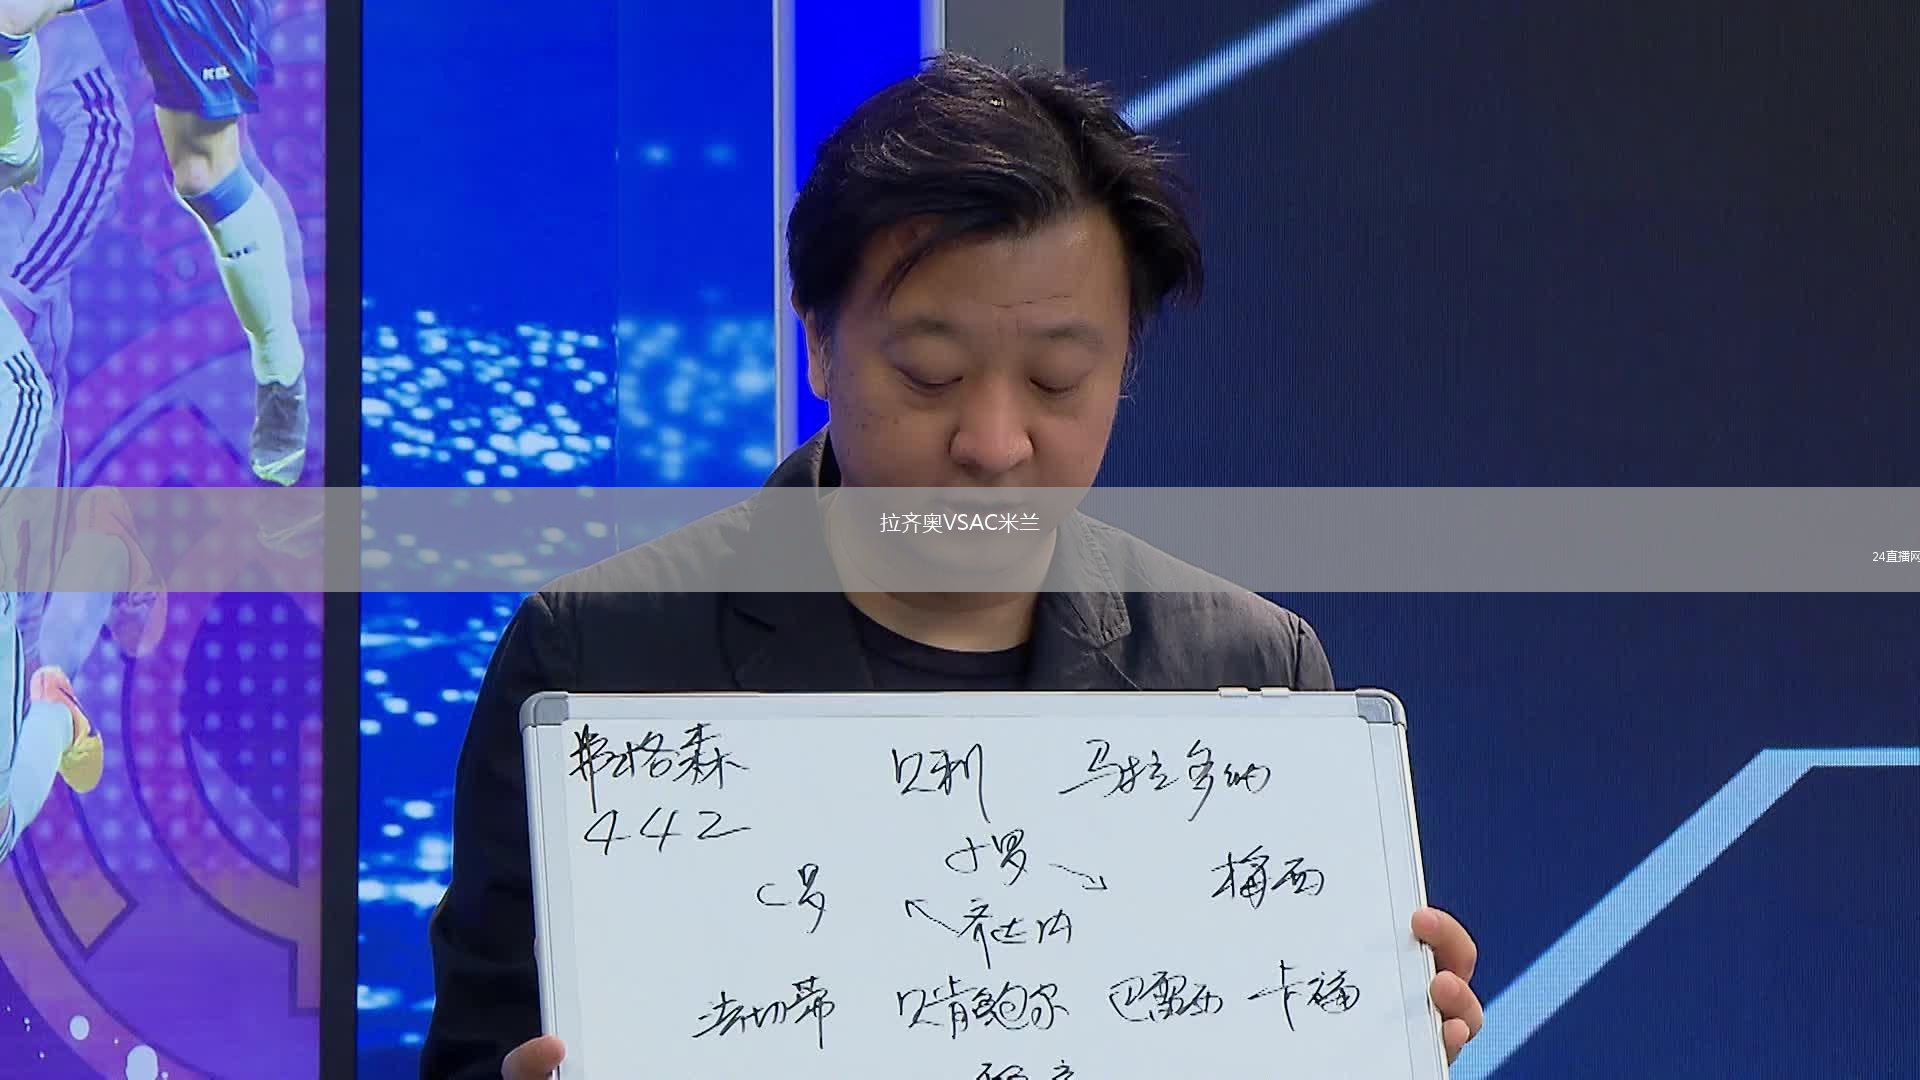 拉齐奥VSAC米兰
24直播网
弗格森 贝利 马拉多纳
442
小罗
C罗 梅西
齐达内
法切蒂 贝肯鲍尔 巴雷西 卡福